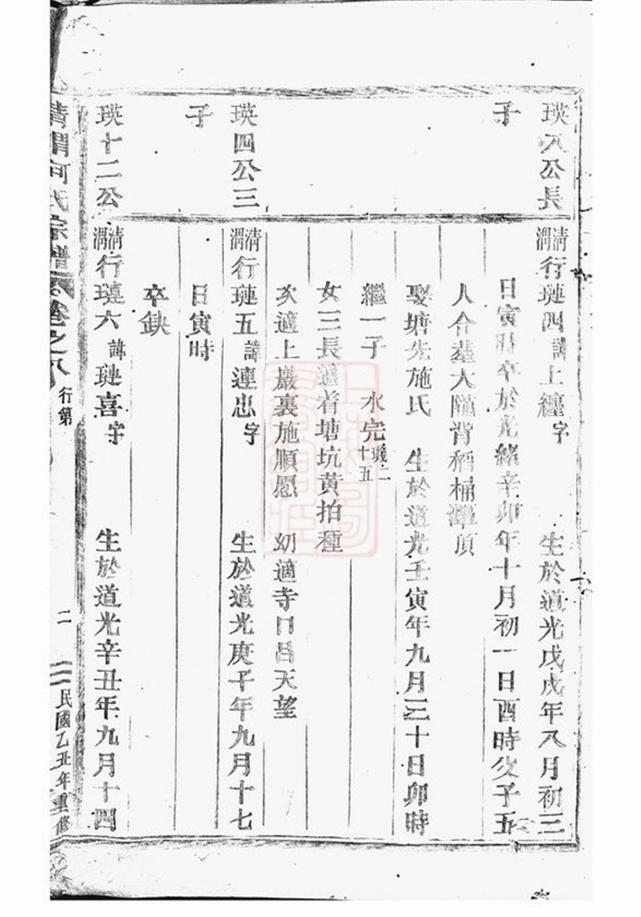 瑛八公長
子
清渭行璉四諱上纏字 生於道光戊戌年八月初三
日寅時卒於光緒辛卯年十月初一日酉時父子五
人合墓大隴背稻桶潭頂
娶塘先施氏 生於道光壬寅年九月三十日卯時
繼一子 水完 十五
女三長適着塘坑黃拍種
次適上巖裏施順愿 幼適寺口呂天望
瑛四公三
子
清渭行璉五諱連忠字 生於道光庚子年九月十七
日寅時
卒缺
瑛十二公
清渭行璉六諱璉喜字 生於道光辛丑年九月十四
清渭何氏宗譜 卷之八 行第 二 民國乙丑年重修